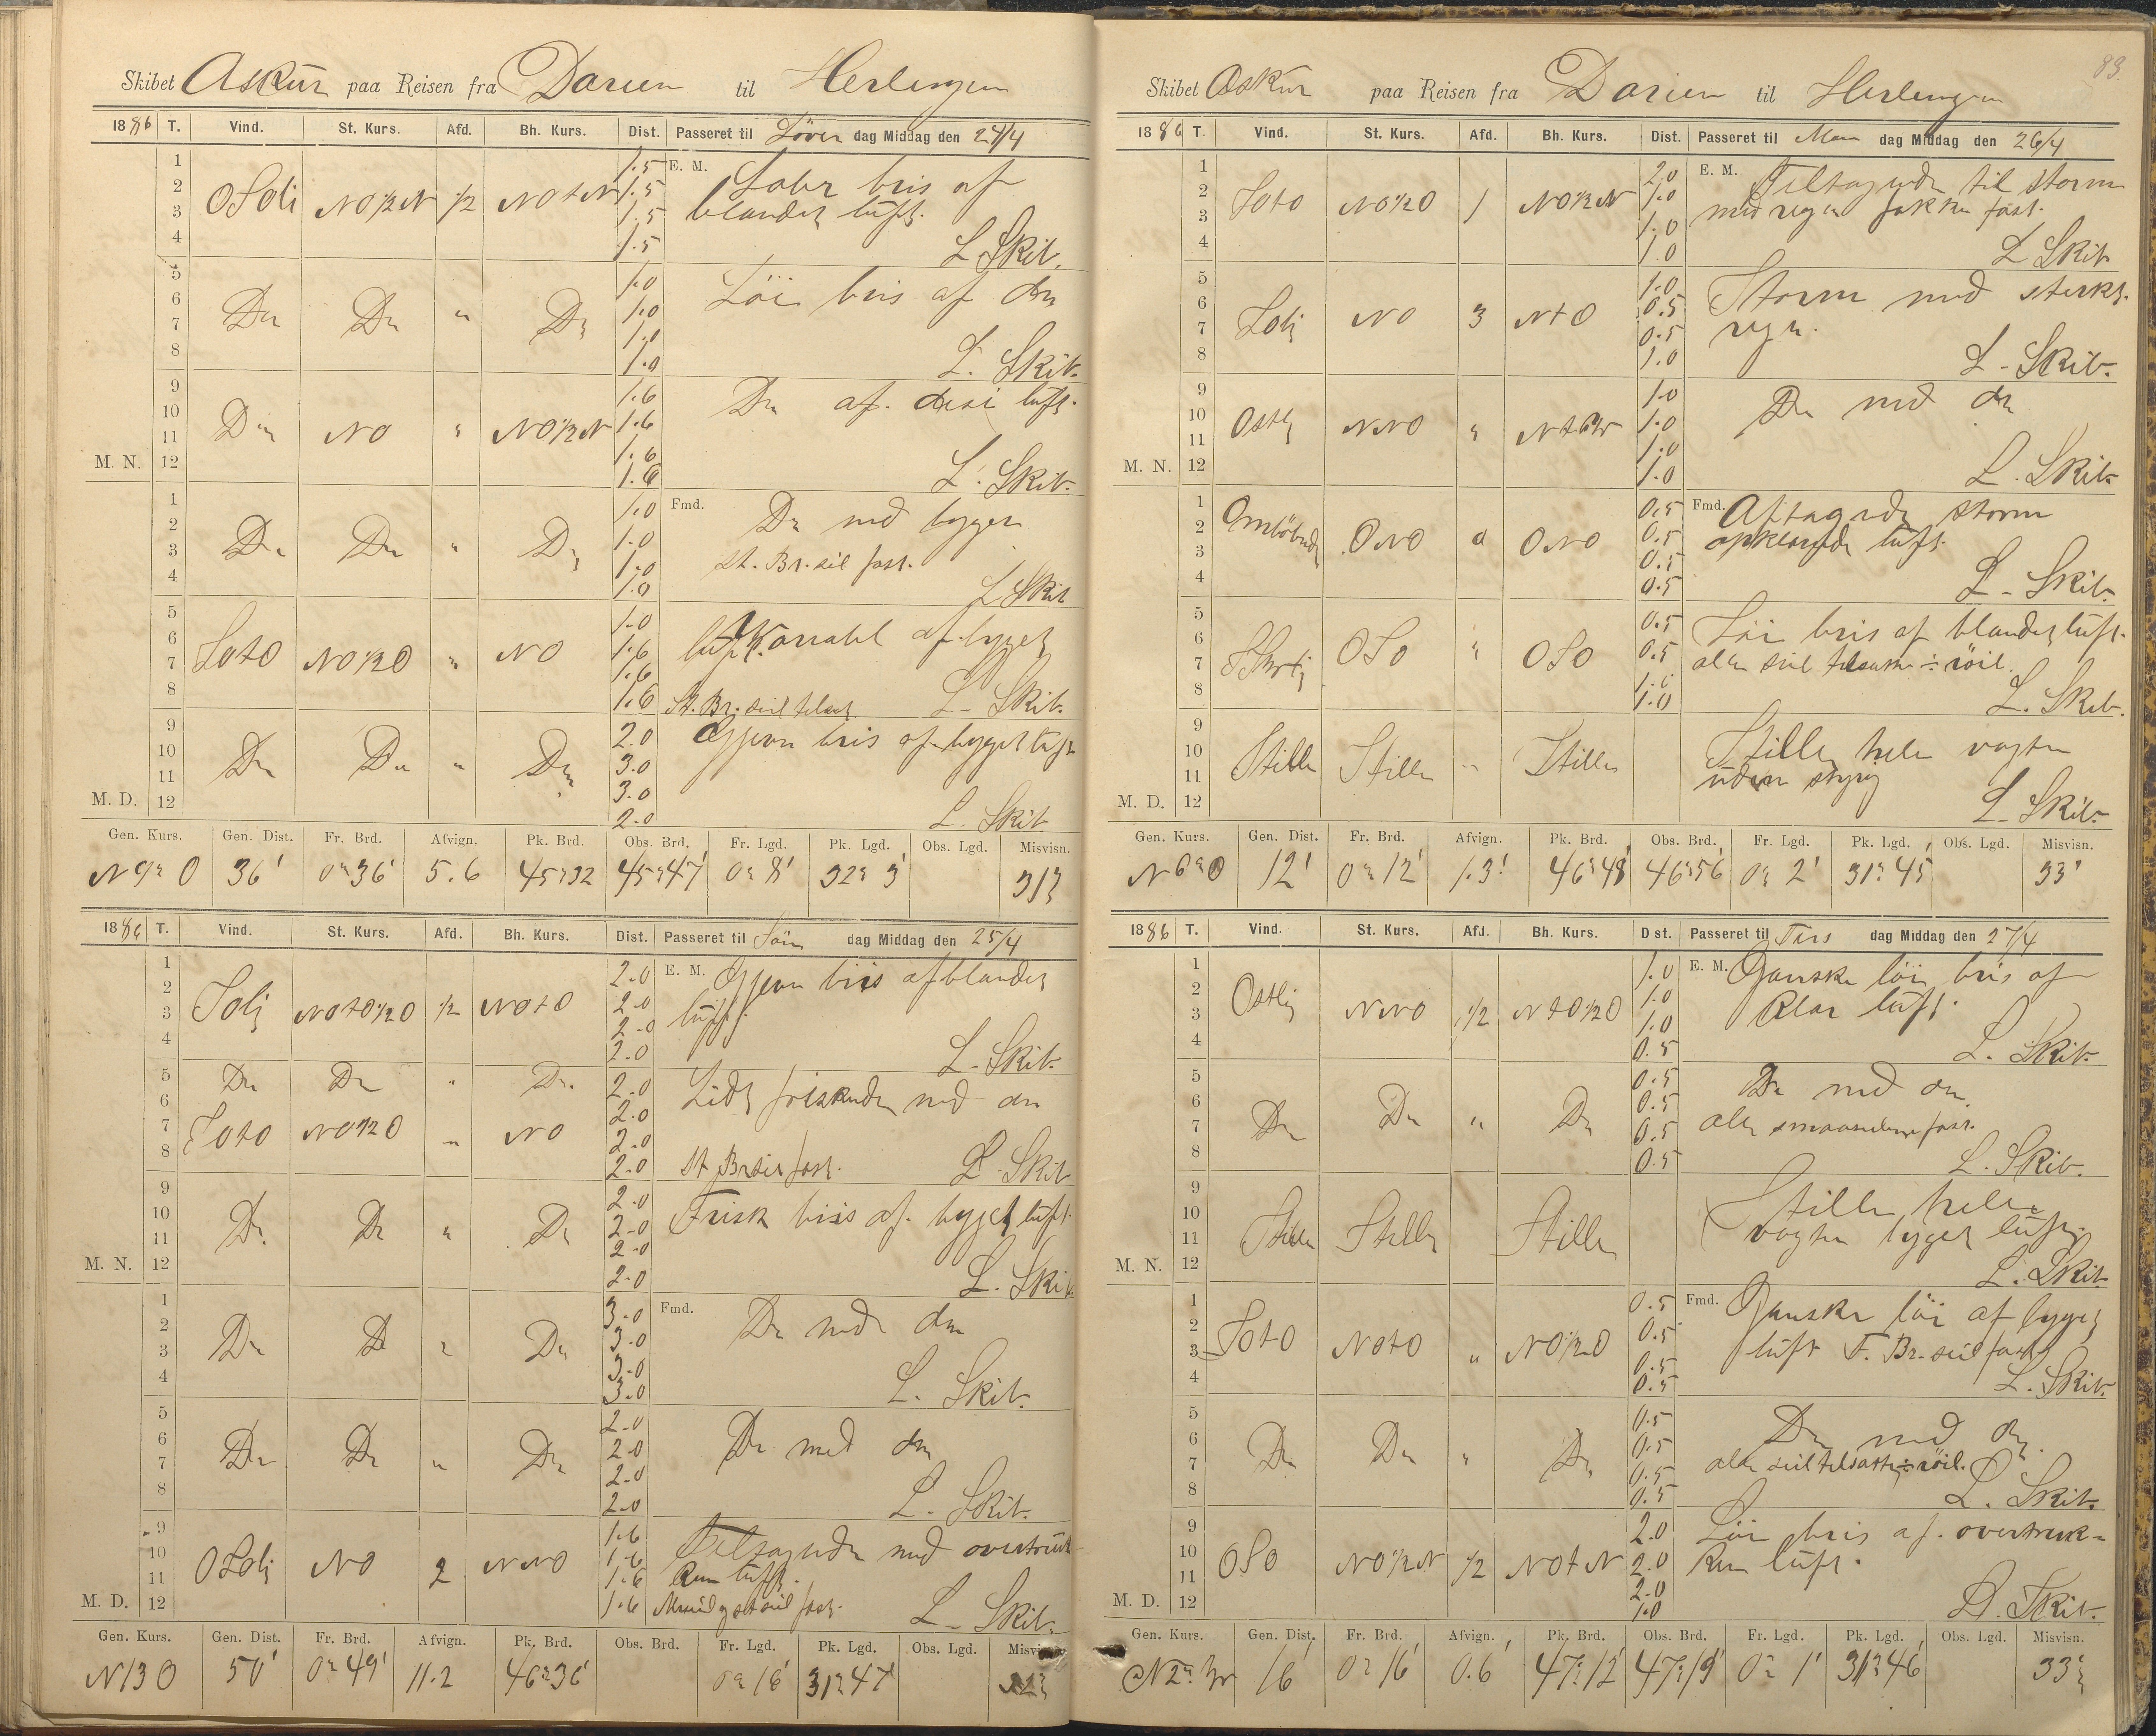 Skibet Askur paa Reisen fra Darien til Herlingen
1886 T. Vind. St. Kurs. Afd. Bh. Kurs. Dist. Passeret til Löver dag Middag den 24/4
1 1.5 E. M. Laber bris af
2 OSOli NO½N ½ NOtN 1.5 blandet luft.
3 1.5
4 1.5 L Skib.
5 1.0 Löi bris af do
6 Do Do " Do 1.0
7 1.0
8 1.0 L. Skib.
9 1.6 Do af. disi luft.
10 Do NO " NO½N 1.6
11 1.6
M. N. 12 1.6 L. Skib.
1 1.0 Fmd. Do med byger
2 Do Do " Do 1.0
3 1.0 St. Br. seil fast.
4 1.0 L Skib
5 1.0 Variabel af byget
6 SOtO NO½O " NO 1.6 luft.
7 1.6
8 1.6 St. Br. seil tilsat. L. Skib.
9 2.0 Gjevn bris af byget luft
10 Do Do " Do 3.0
11 3.0
M. D. 12 2.0 L. Skib.
Gen. Kurs. Gen. Dist. Fr. Brd. Afvign. Pk. Brd. Obs. Brd. Fr. Lgd. Pk. Lgd. Obs. Lgd. Misvisn.
N 9° O 36' 0° 36' 5.6 45° 32 45° 47' 0° 8' 32° 3' 31°
1886 T. Vind. St. Kurs. Afd. Bh. Kurs. Dist. Passeret til Sön dag Middag den 25/4
1 2.0 E. M. Gjevn bris af blandet
2 SOlj NOtO½O ½ NOtO 2.0 luft.
3 2.0
4 2.0 L. Skib.
5 Do Do " Do. 2.0 Lidt friskende med do
6 2.0
7 SOtO NO½O " NO 2.0
8 2.0 St Br seil fast. L. Skib
9 2.0 Frisk bris af. byget luft.
10 Do Do " Do 2.0
11 2.0
M. N. 12 2.0 L. Skib
1 3.0 Fmd. Do med do
2 Do Do " Do 3.0
3 3.0
4 3.0 L. Skib.
5 2.0 Do med do
6 Do Do " Do 2.0
7 2.0
8 2.0 L. Skib.
9 1.6 Tiltagende med overtruk
10 OSOlj NO 2 NNO 1.6 ken luft.
11 1.6
M. D. 12 1.6 fast. L. Skib.
Gen. Kurs. Gen. Dist. Fr. Brd. Afvign. Pk. Brd. Obs. Brd. Fr. Lgd. Pk. Lgd. Obs. Lgd. Misvisn.
N 13 O 50' 0° 49' 11.2 46° 36' 0° 16' 31° 47'
83.
Skibet Askur paa Reisen fra Darien til Herlingen
1886 T. Vind. St. Kurs. Afd. Bh. Kurs. Dist. Passeret til Man dag Middag den 26/4
1 2.0 E. M. Tiltagende til storm
2 SOtO NO½O 1 NO½N 1.0 med regn fokken fast.
3 1.0
4 1.0 L Skib
5 1.0 Storm med sterkt.
6 SOlj NO 3 NtO 0.5 regn.
7 0.5
8 1.0 L. Skib.
9 1.0 Do med do
10 Ostlj NNO " 1.0
11 1.0
M. N. 12 1.0 L. Skib.
1 0.5 Fmd. Aftagende storm
2 Omlöbende ONO 0 ONO 0.5 opklarende luft.
3 0.5
4 0.5 L. Skib.
5 0.5 Löi bris af blandet luft.
6 OSO " OSO 0.5 alle seil tilsatte ÷ röil.
7 1.0
8 1.0 L. Skib.
9 Stille hele vagten
10 Stille Stille " Stille uden styring
11
M. D. 12 L. Skib.
Gen. Kurs. Gen. Dist. Fr. Brd. Afvign. Pk. Brd. Obs. Brd. Fr. Lgd. Pk. Lgd. Obs. Lgd. Misvisn.
N 6° O 12' 0° 12' 1.3' 46° 48' 46° 56' 0° 2' 31° 45' 33°
1886 T. Vind. St. Kurs. Afd. Bh. Kurs. Dist. Passeret til Tirs dag Middag den 27/4
1 1.0 E. M. Ganske löi bris af
2 Ostlig NNO ½ NtO½O 1.0 klar luft.
3 1.0
4 0.5 L. Skib.
5 0.5 Do med do
6 Do Do " Do 0.5 alle smaaseilene fast.
7 0.5
8 0.5 L. Skib.
9 Stille hele
10 Stille Stille Stille vagten byget luft.
11
M. N. 12 L. Skib.
1 0.5 Fmd. Ganske löi af byget
2 SOtO NOtO " NO½O 0.5 luft F. Br. seil fast
3 0.5
4 0.5 L. Skib.
5 0.5 Do med do.
6 Do Do " Do 0.5 alle seil tilsatte ÷ röil.
7 0.5
8 0.5 L. Skib.
9 2.0 Löi bris af. overtruk-
10 OSO NO½N ½ NOtN 2.0 ken luft.
11 2.0
M. D. 12 1.0 L. Skib.
Gen. Kurs. Gen. Dist. Fr. Brd. Afvign. Pk. Brd. Obs. Brd. Fr. Lgd. Pk. Lgd. Obs. Lgd. Misvisn.
N 2° W 16' 0° 16' 0.6' 47° 12' 47° 19' 0° 1' 31° 46' 33°